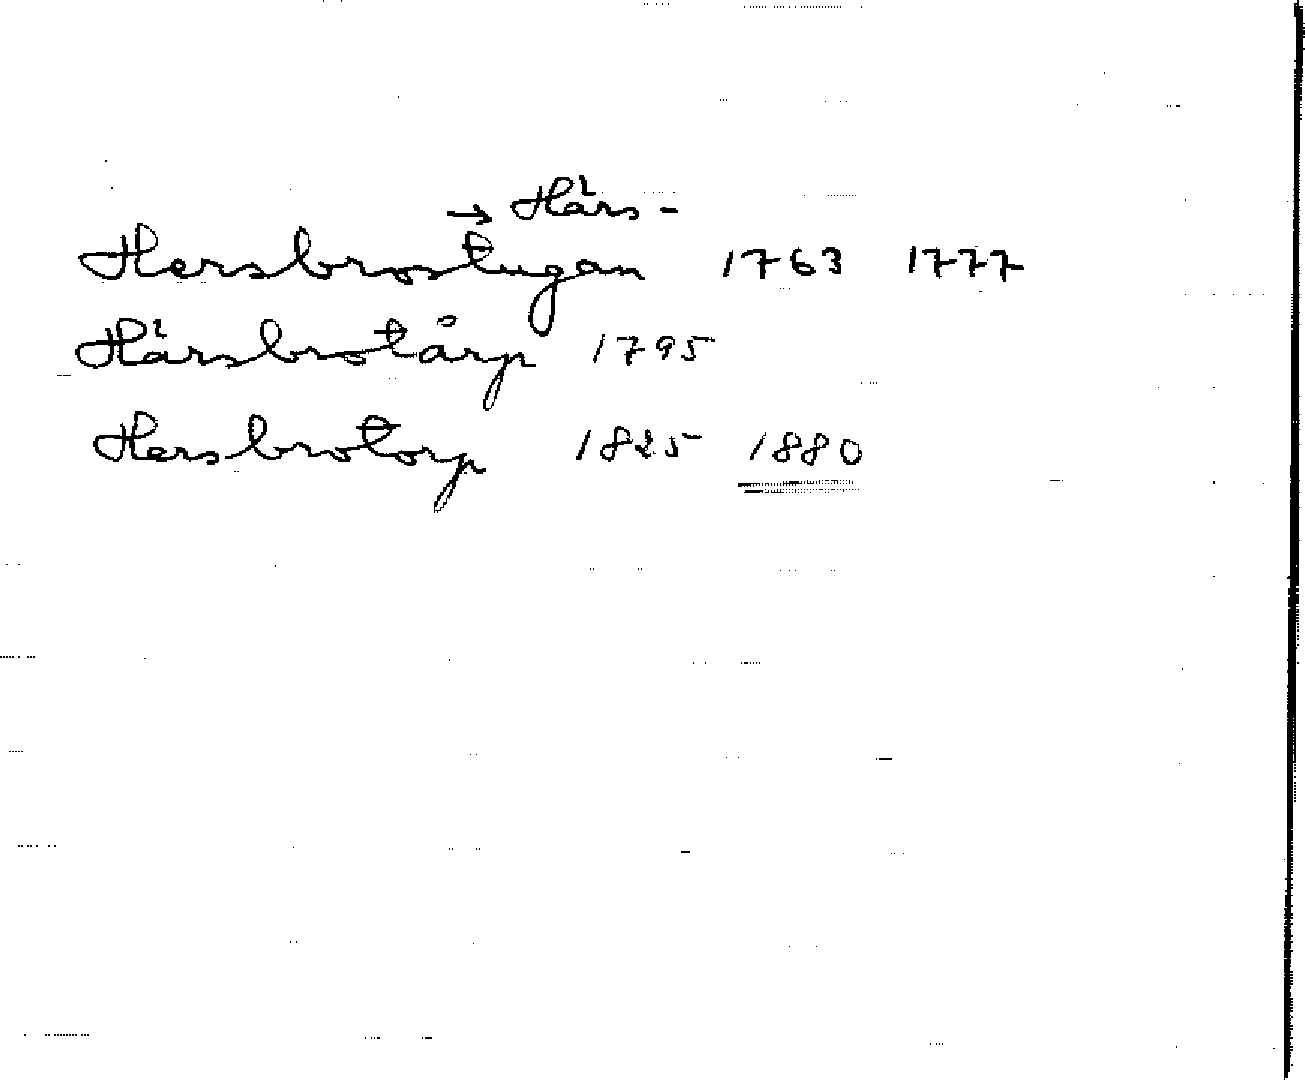 → Härs-
Hersbrostugan 1763 1777
Härsbrotårp 1795
Hersbrotorp 1825 1880